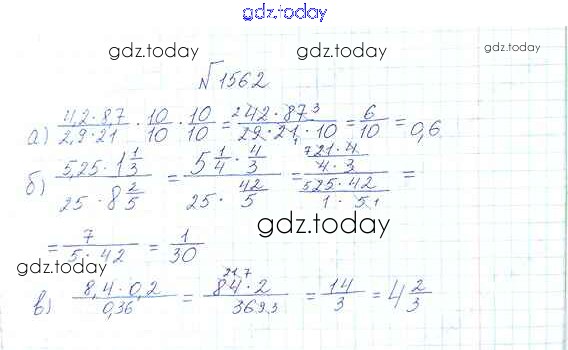 gdz.today
gdz.today
gdz.today
№1562
gdz.today
gdz.today
а) 4,2·8,7/2,9·21 · 10/10 · 10/10 = 42·87/29·21·10 = 6/10 = 0,6
б) 5,25·1 1/3 / 25·8 2/5 = 5 1/4 · 4/3 / 25 · 42/5 = 21·4/4·3 / 25·42/1·5 =
gdz.today
= 7/5·42 = 1/30
gdz.today
в) 8,4·0,2/0,36 = 84·2/36 = 14/3 = 4 2/3
gdz.today